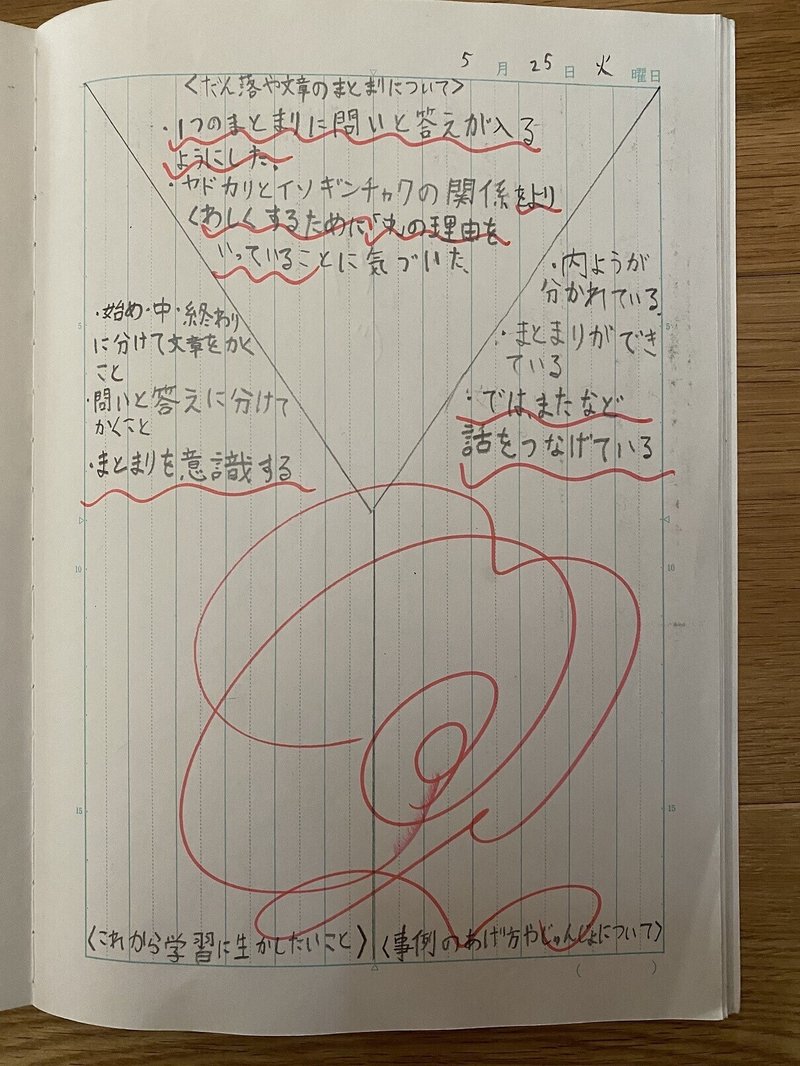 5月25日 火曜日
〈だん落や文章のまとまりについて〉
・1つのまとまりに問いと答えが入る
ようにした。
・ヤドカリとイソギンチャクの関係をより
くわしくするために「 」の理由を
いっていることに気づいた。
・始め・中・終わり
に分けて文章をかく
こと
・問いと答えに分けて
かくこと
・まとまりを意識する
・内ようが
分かれている。
・まとまりができ
ている
・では、またなど
話をつなげている
〈これから学習に生かしたいこと〉
〈事例のあげ方やじゅんじょについて〉
5
10
15
5
10
15
( )